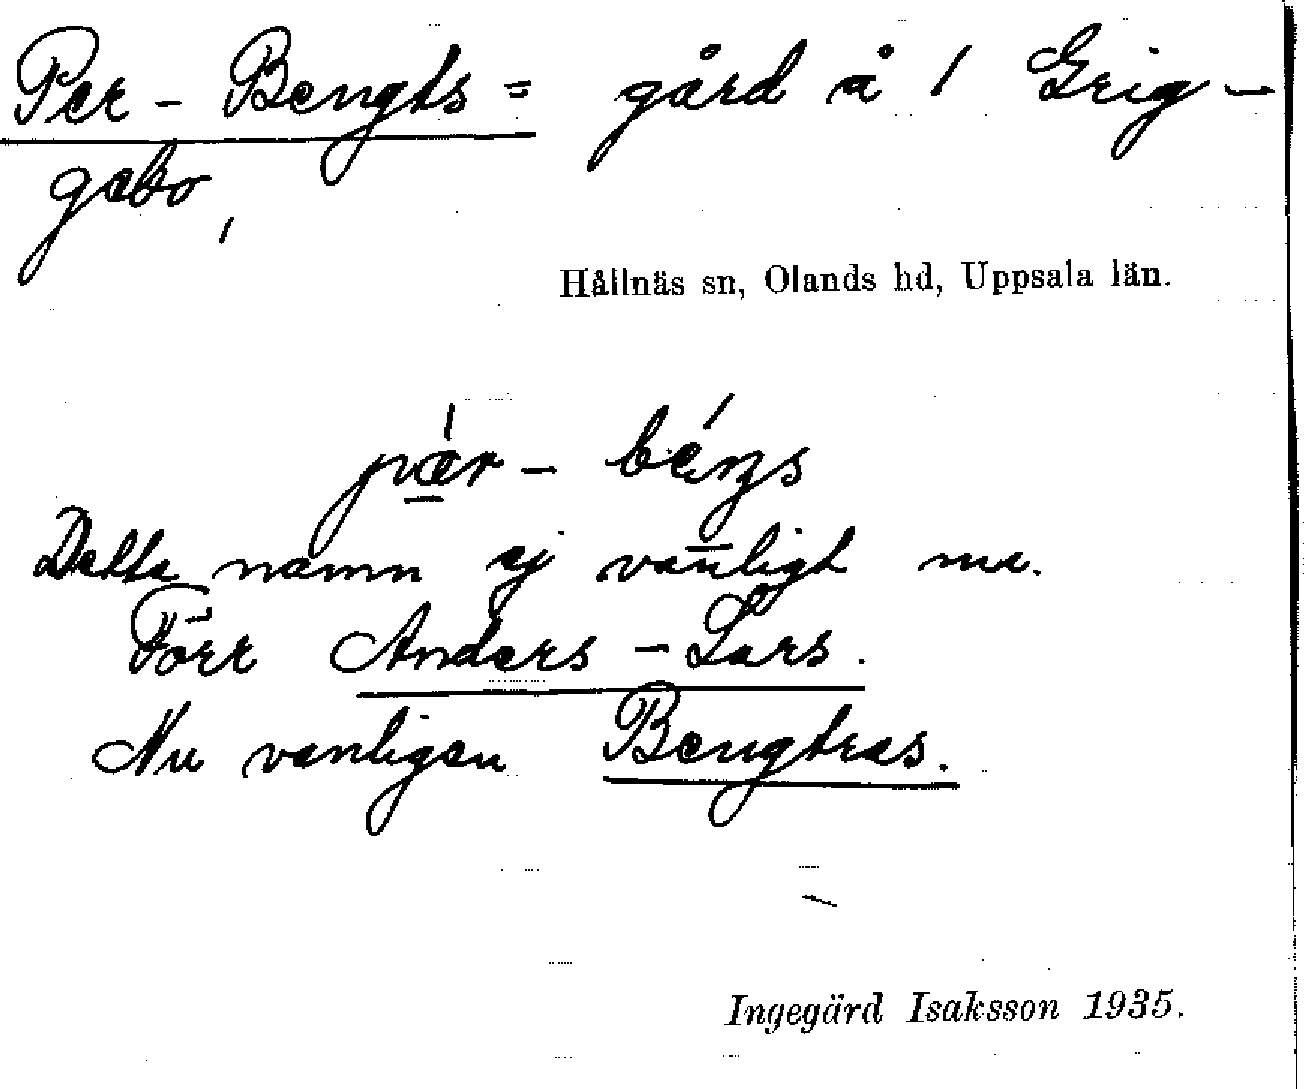 Per - Bengts = gård å 1 Grig-
gebo,
Hållnäs sn, Olands hd, Uppsala län.
pær - béŋs
Detta namn ej vanligt nu.
Förr Anders - Lars.
Nu vanligen Bengtsas.
Ingegärd Isaksson 1935.